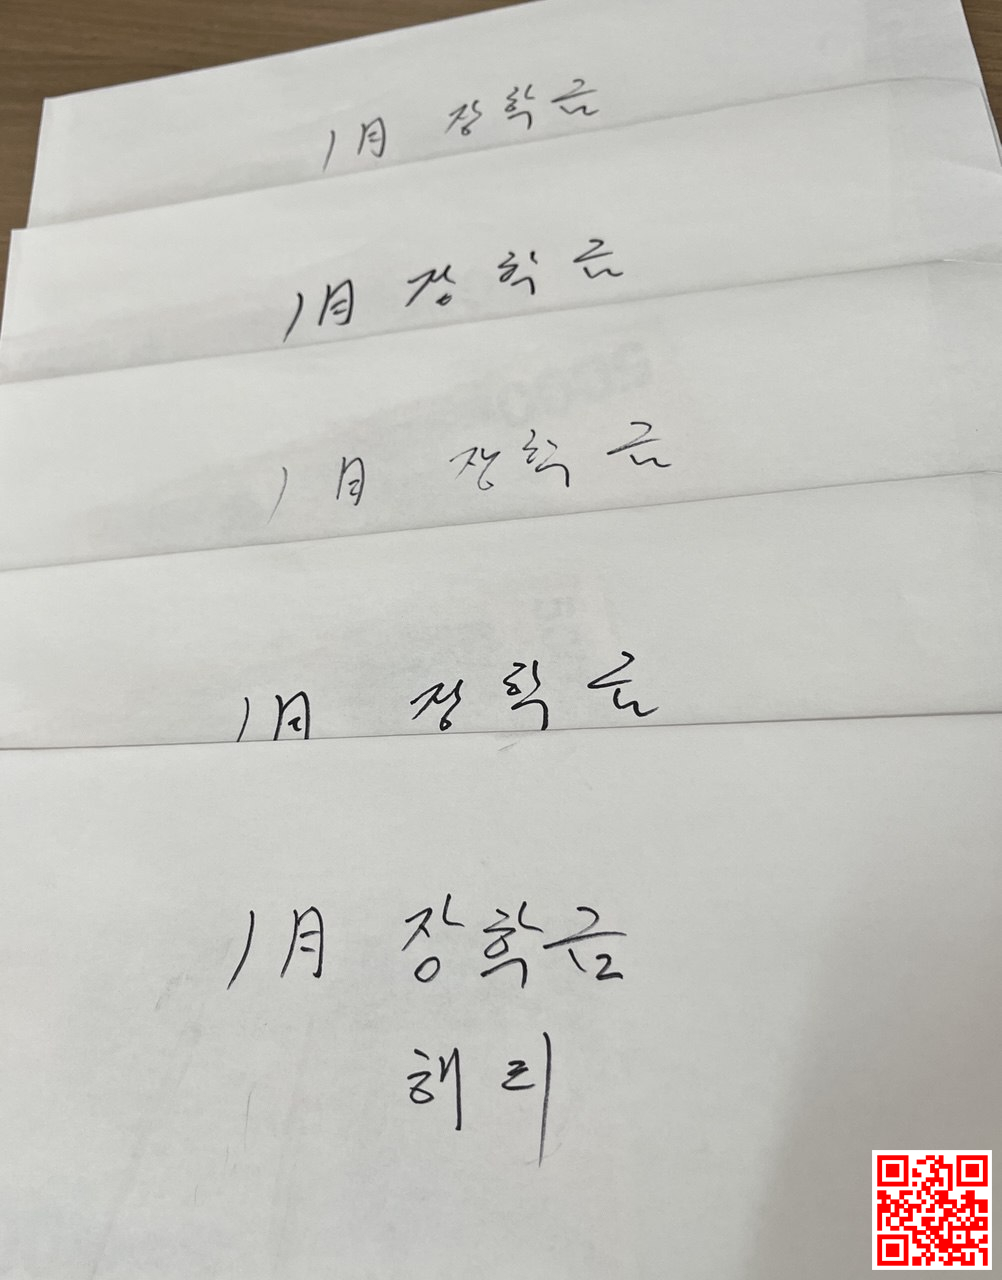 1月 장학금
1月 장학금
1月 장학금
1月 장학금
1月 장학금
해리